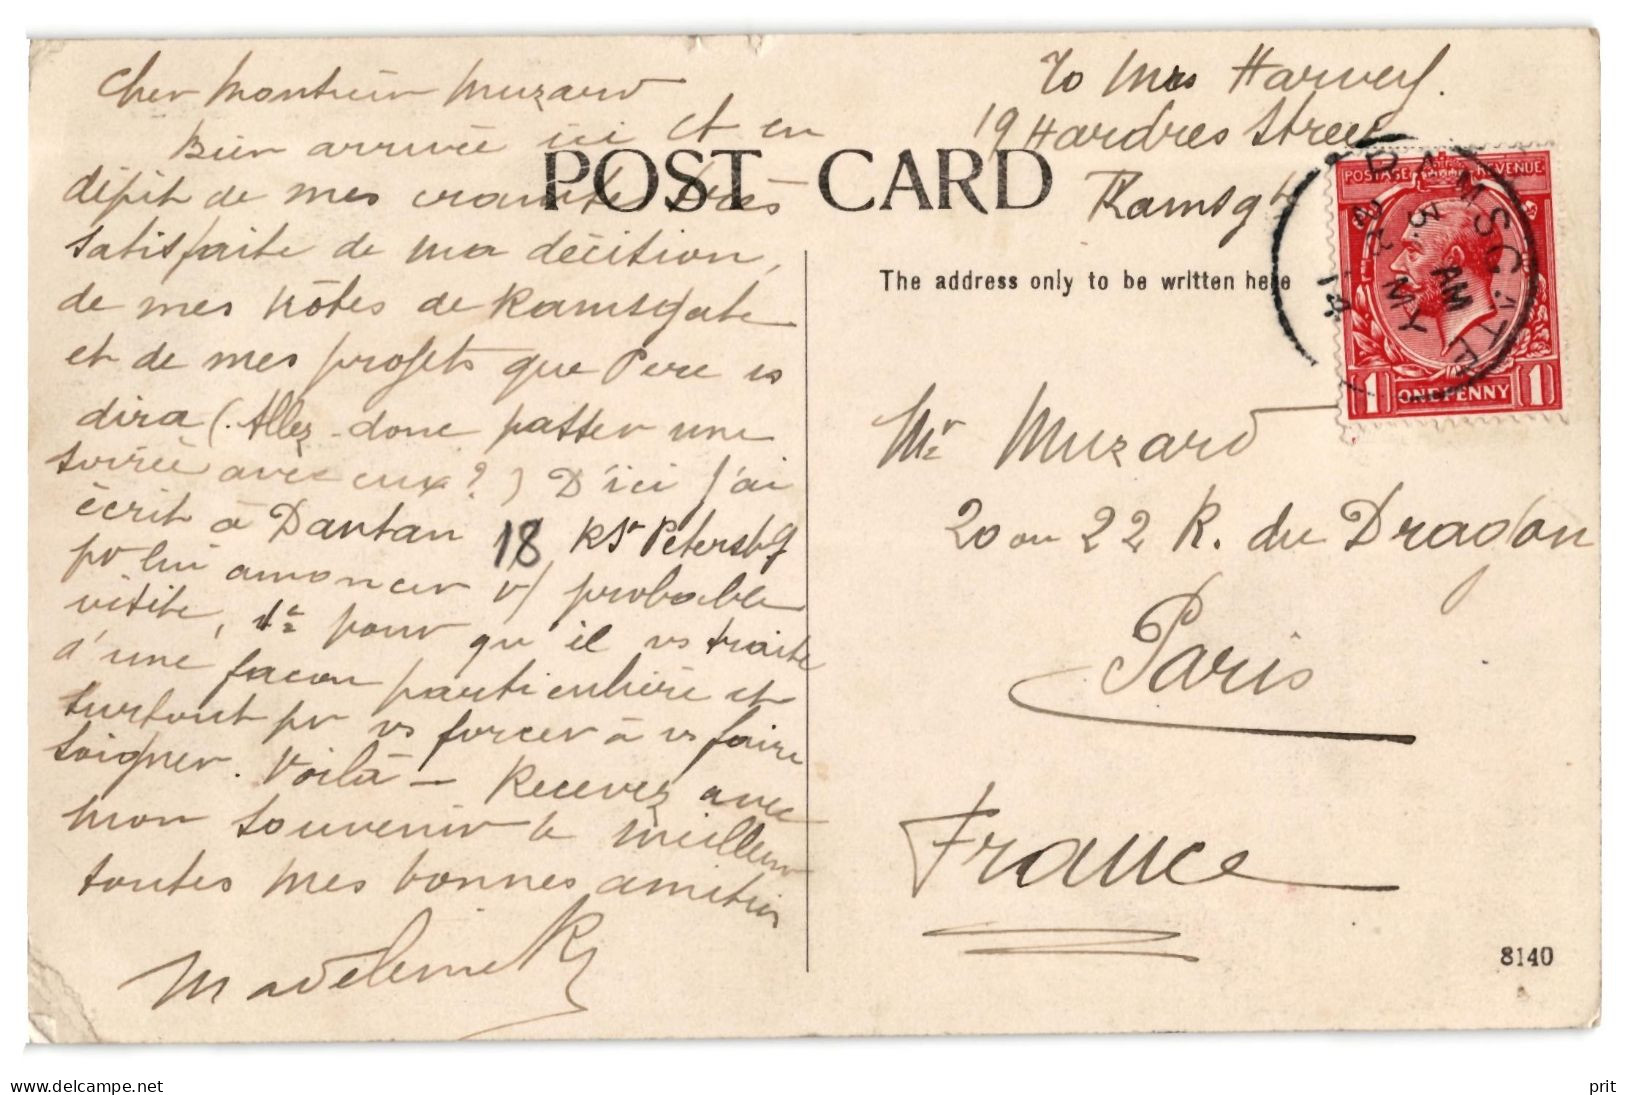 Cher Monsieur Muzard
Bien arrivée ici et en
dépit de mes craintes très
satisfaite de ma décision,
de mes hôtes de Ramsgate
et de mes projets que Père vs
dira (. Allez donc passer une
soirée avec eux ? ) D'ici j'ai
écrit à Dantan 18 R St Petersbg
pr lui annoncer v/ probable
visite, 1º pour qu'il vs traite
d'une façon particulière et
surtout pr vs forcer à vs faire
soigner. Voilà — Recevez avec
mon souvenir le meilleur
toutes mes bonnes amitiés
Madeleine R
POST CARD
To Mrs Harvey.
19 Hardres Street
Ramsgte
The address only to be written here
POSTAGE REVENUE
1 ONE PENNY 1
RAMSGATE
AM
MY
14
Mr Muzard
20 ou 22 R. du Dragon
Paris
France
8140
delcampe.net
prit